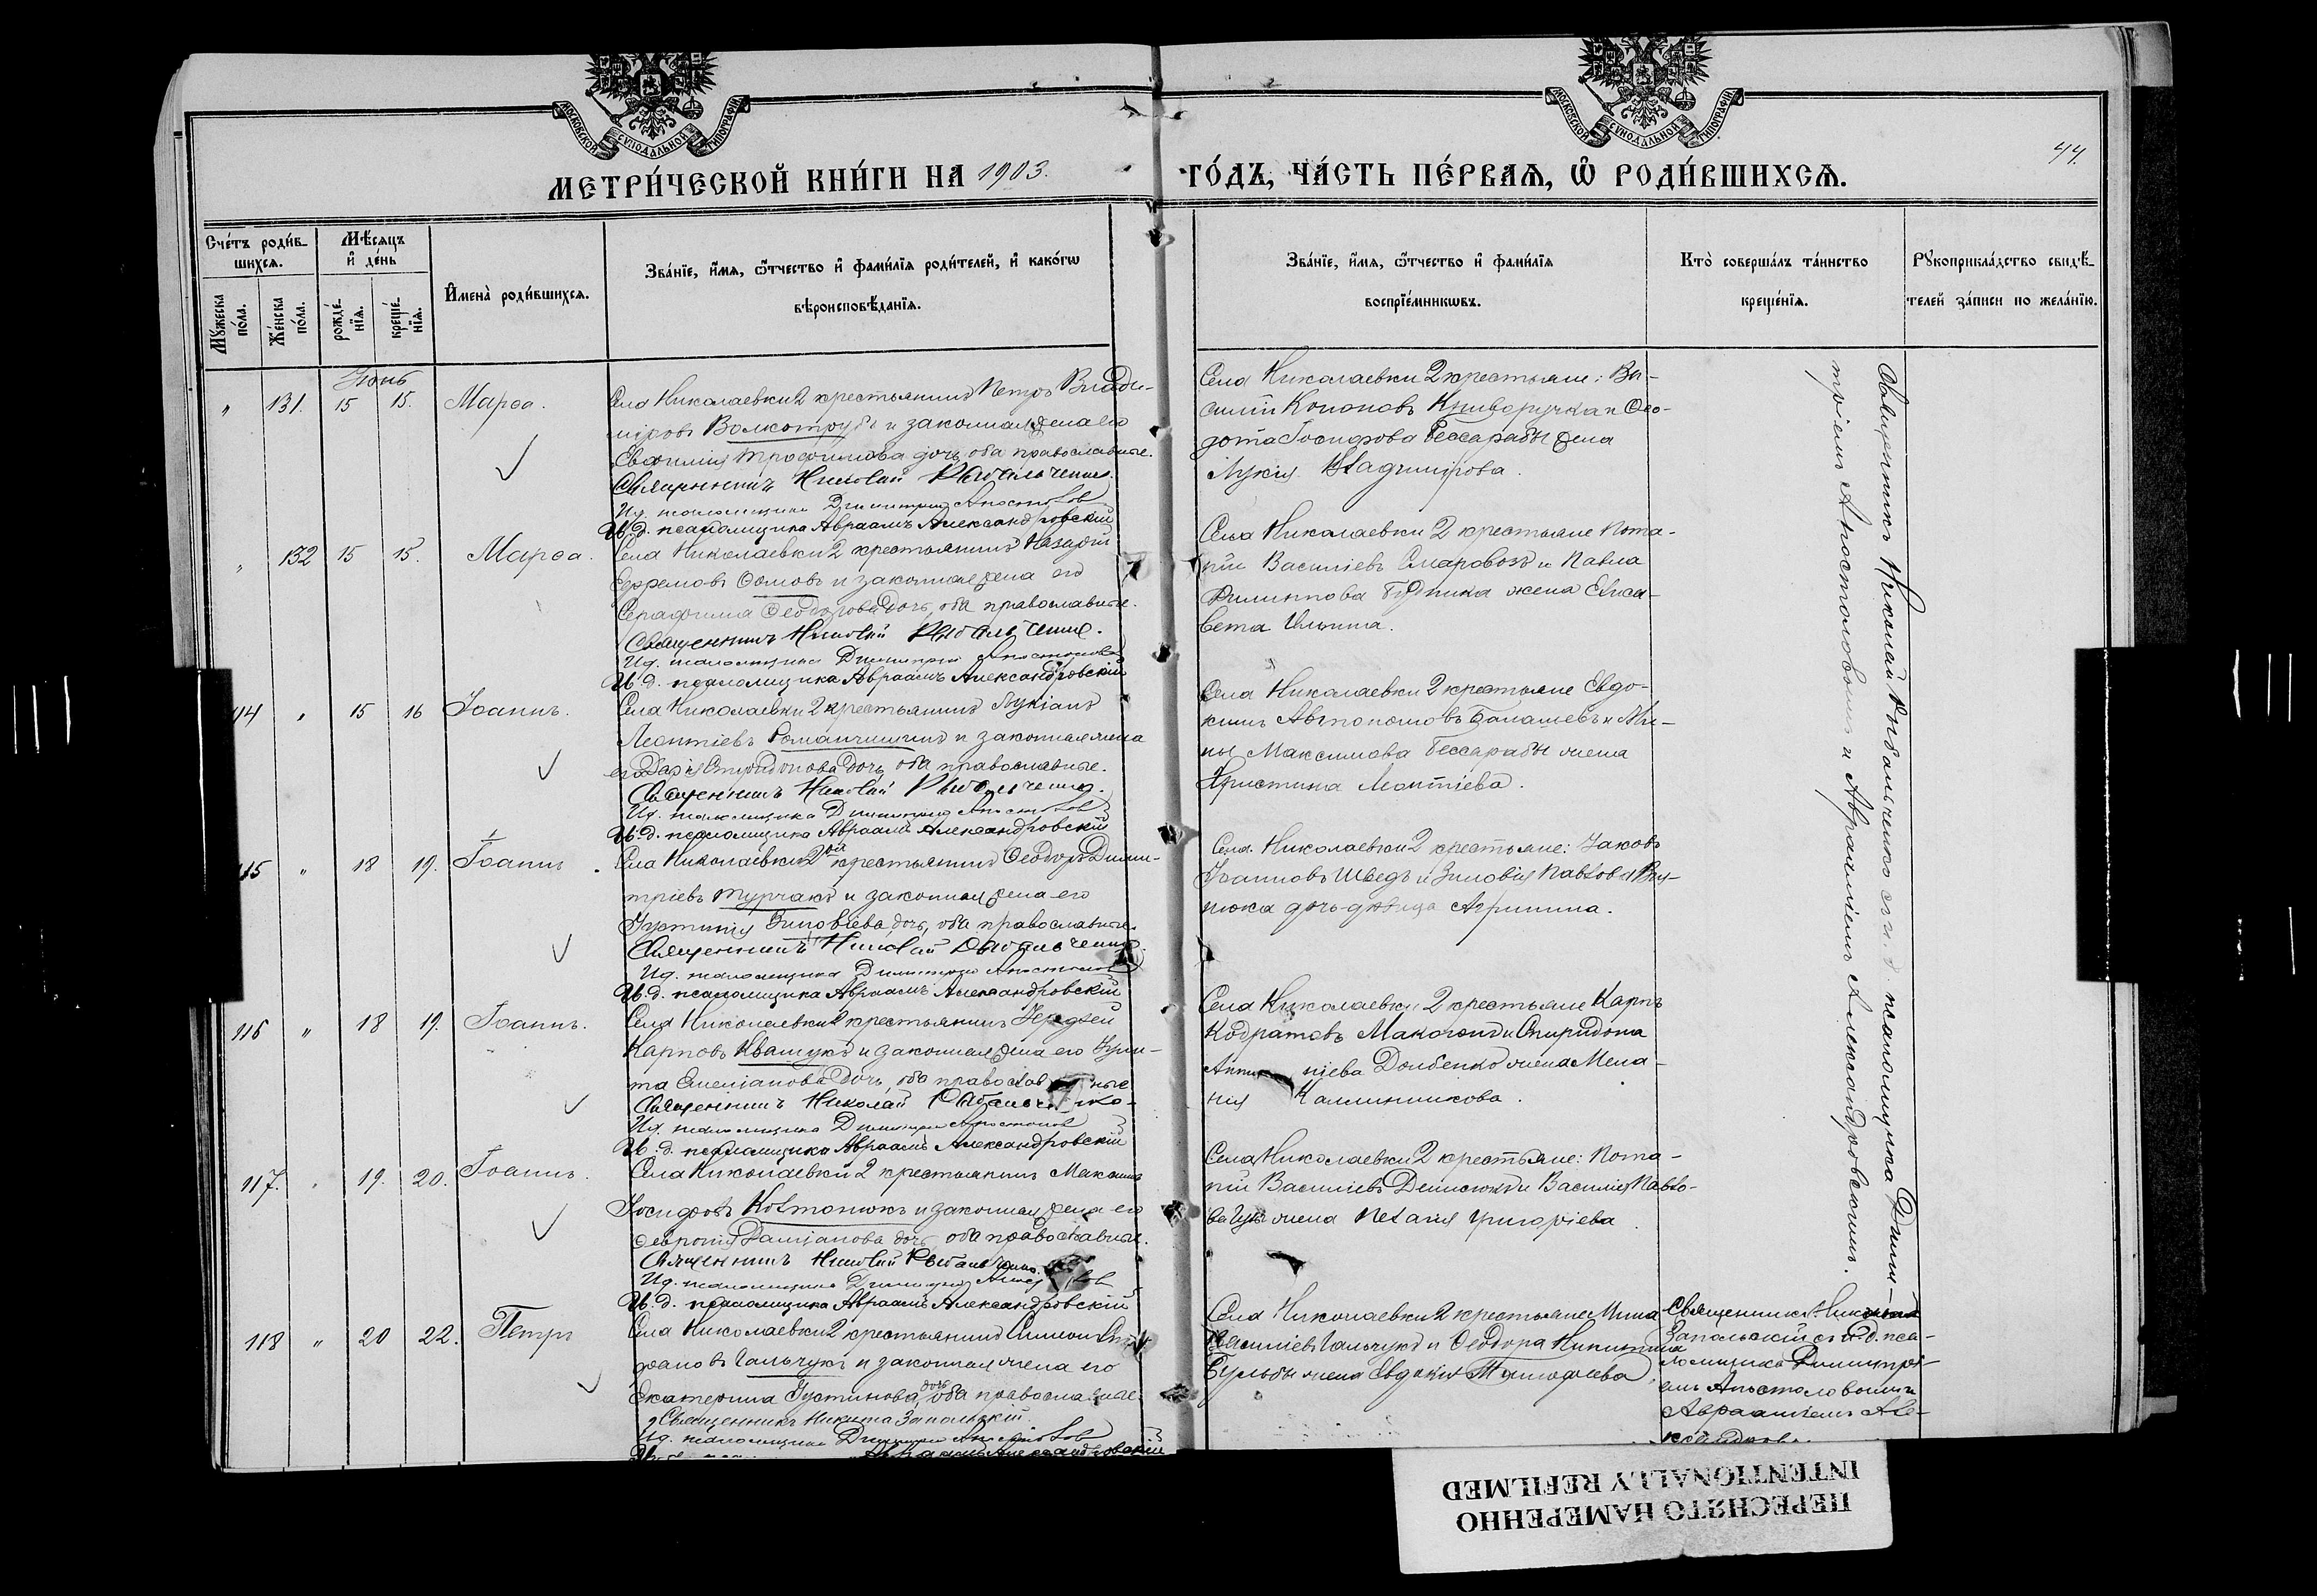 МОСКОВСКОЙ СѴНОДАЛЬНОЙ ТИПОГРАФІИ
МОСКОВСКОЙ СѴНОДАЛЬНОЙ ТИПОГРАФІИ
44.
МЕТРИ́ЧЕСКОЙ КНИ́ГИ НА 1903.
ГО́ДЪ, ЧА́СТЬ ПЕ́РВАѦ, Ѡ҆ РОДИ́ВШИХСѦ.
Сче́тъ роди́в-
шихсѧ.
Мѣ́сѧцъ
и҆ де́нь
Мꙋ́жеска
по́ла.
Же́нска
по́ла.
рожде́-
нїѧ.
креще́-
нїѧ.
И҆мена̀ роди́вшихсѧ.
Зва́нїе, и҆́мѧ, ѻ҆́тчество и҆ фами́лїѧ роди́телей, и҆ како́гѡ
вѣроисповѣ́данїѧ.
Зва́нїе, и҆́мѧ, ѻ҆́тчество и҆ фами́лїѧ
воспрїе́мникѡвъ.
Кто̀ соверша́лъ та́инство
креще́нїѧ.
Рꙋкоприкла́дство свидѣ́-
телей за́писи по жела́нїю.
Іюнь
" 131. 15 15. Марѳа.
Села Николаевки 2 крестьянинъ Петръ Влади-
міровъ Волкотрубъ и законная жена его
Евфимія Трофимова дочь, оба православные.
Священникъ Николай Рыбальченко.
И.д. псаломщика Димитрій Апостолов
И.д. псаломщика Авраамъ Александровскій
Села Николаевки 2 крестьяне: Ва-
силій Кононовъ Криворучка и Ѳео-
дота Іосифова Бессарабы жена
Лукія Владимірова.
" 132 15 15. Марѳа.
Села Николаевки 2 крестьянинъ Назарій
Ефремовъ и законная жена его
Серафима Ѳеодорова дочь, оба православные.
Священникъ Николай Рыбальченко.
И.д. псаломщика Димитрій Апостолов
И.д. псаломщика Авраамъ Александровскій
Села Николаевки 2 крестьяне Пота-
пій Василіевъ и Павла
Филиппова Будника жена Елиса-
вета Ильина.
114 " 15 16 Іоаннъ.
Села Николаевки 2 крестьянинъ Лукіанъ
Леонтіевъ Романчишинъ и законная жена
его Дарія Спиридонова дочь, оба православные.
Священникъ Николай Рыбальченко.
И.д. псаломщика Димитрій Апостолов
И.д. псаломщика Авраамъ Александровскій
Села Николаевки 2 крестьяне Евдо-
кимъ Автономовъ Балашевъ и Ми-
ны Максимова Бессарабы жена
Христина Леонтіева.
115 " 18 19. Іоаннъ.
Села Николаевки 2ой крестьянинъ Ѳеодоръ Дими-
тріевъ Турчакъ и законная жена его
Іустинія Зиновіева дочь, оба православные.
Священникъ Николай Рыбальченко
И.д. псаломщика Димитрій Апостолов
И.д. псаломщика Авраамъ Александровскій
Села Николаевки 2 крестьяне: Іаковъ
Іоанновъ Шведъ и Зиновія Павлова
нюка дочь-девица Агрипина.
116 " 18 19. Іоаннъ.
Села Николаевки 2 крестьянинъ
Карповъ Квашукъ и законная жена его Ири-
на Емеліанова дочь, оба православные
Священникъ Николай Рыбальченко
И.д. псаломщика Димитрій Апостолов
И.д. псаломщика Авраамъ Александровскій
Села Николаевки 2 крестьяне Карпъ
Кодратовъ Макогонъ и Спиридона
Долбенко жена Мела-
нія Калинникова.
117. " 19. 20. Іоаннъ.
Села Николаевки 2 крестьянинъ Максимъ
Іосифовъ Ковтонюкъ и законная жена его
Ѳевронія Даміанова дочь, оба православные.
Священникъ Николай Рыбальченко.
И.д. псаломщика Димитрій Апостолов
И.д. псаломщика Авраамъ Александровскій
Села Николаевки 2 крестьяне: Пота-
пій Василіевъ Денисюкъ и Василія Павло-
ва жена Пелагія Григоріева
118 " 20 22. Петръ
Села Николаевки 2 крестьянинъ Симеонъ Сте-
фановъ Гальчукъ и законная жена его
Екатерина Іустинова дочь, оба православные.
Священникъ Никита Запольскій.
И.д. псаломщика Димитрій Апостолов
Авраамъ Александровскій
Села Николаевки 2 крестьяне Мина
Василіевъ Гальчукъ и Ѳеодора Никитина
Бульбы жена Евдокія Тимофеева
Священникъ Николай Рыбальченко съ и. д. псаломщика Дими-
тріемъ Апостоловымъ и Авраамiемъ Александровскимъ.
Священникъ Никита
Запольскій съ и. д. пса-
ломщика Димитрі-
емъ Апостоловымъ и
Авраамiемъ Але-
ксандров.
ПЕРЕСНЯТО НАМЕРЕННО
INTENTIONALLY REFILMED